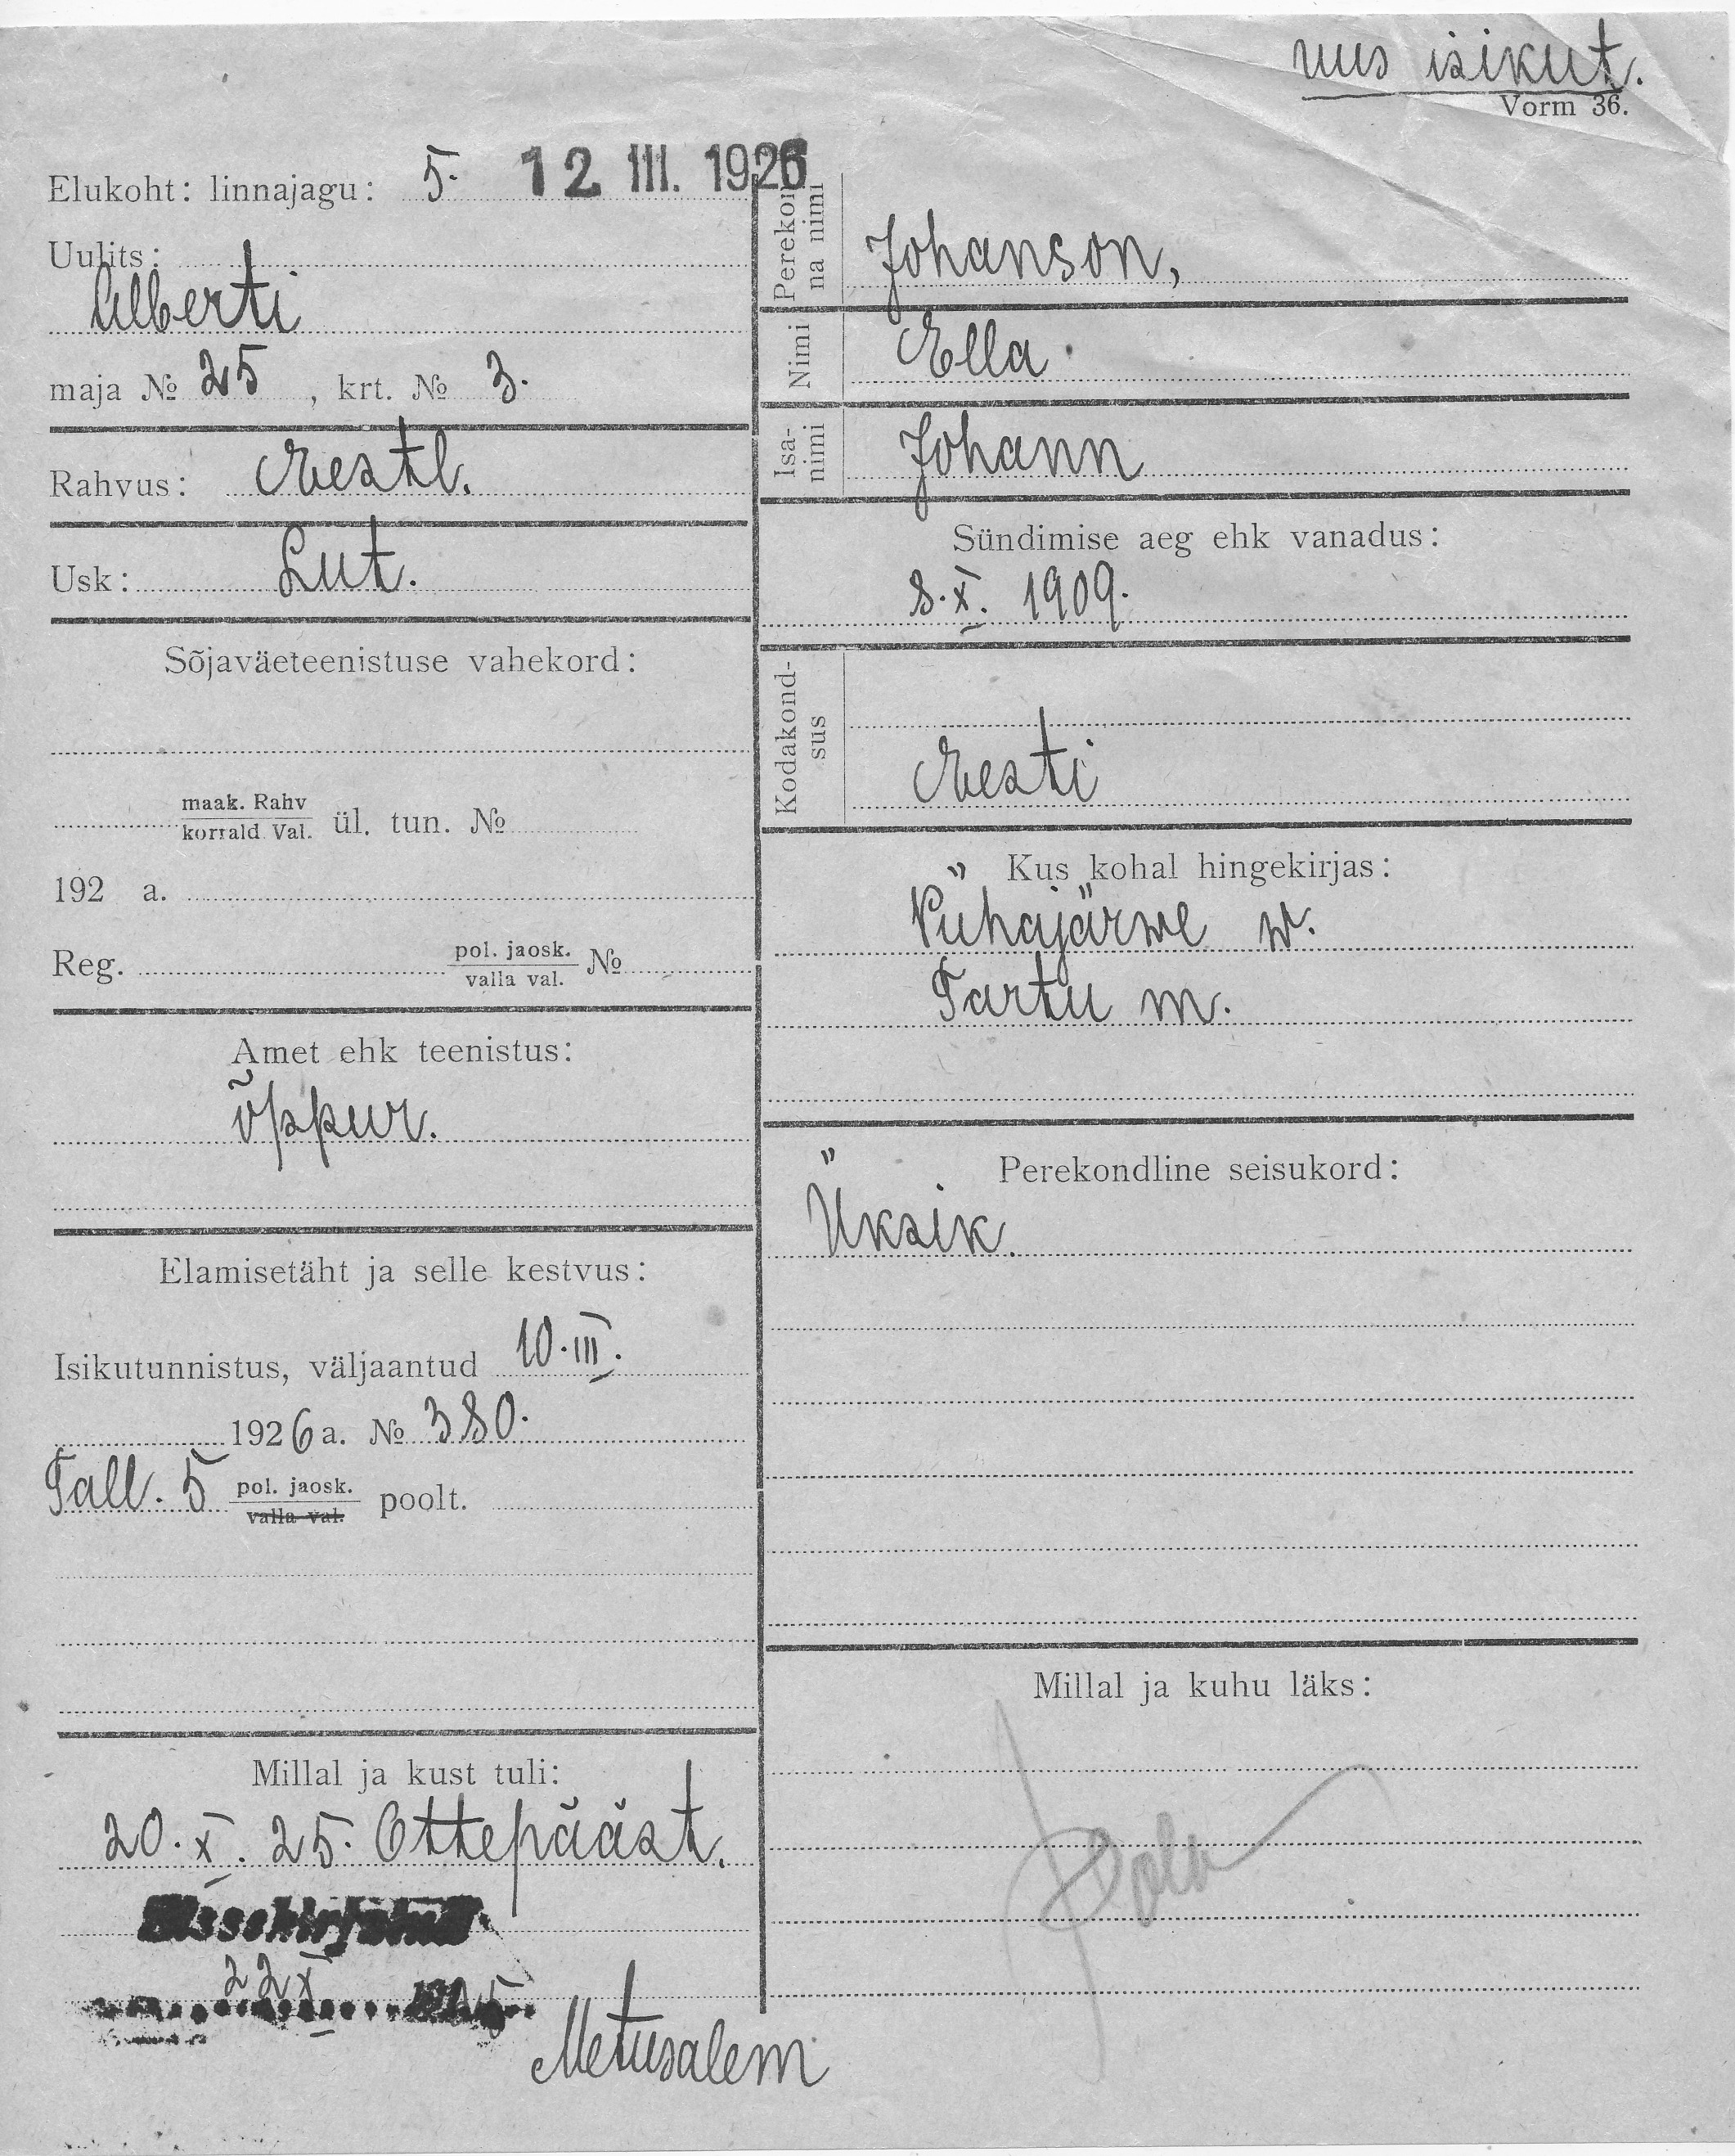 uus isikut.
Vorm 36.
Elukoht: linnajagu: 5. 12 III. 1926
Uulits:
Alberti
maja № 25 , krt. № 3.
Rahvus: Eestl.
Usk: Lut.
Sõjaväeteenistuse vahekord:
maak. Rahv
korrald Val. ül. tun. №
192 a.
Reg. pol. jaosk. №
valla val.
Amet ehk teenistus:
õppur.
Elamisetäht ja selle kestvus:
Isikutunnistus, väljaantud 10.III.
1926 a. № 380.
Tall. 5 pol. jaosk. poolt.
valla val.
Millal ja kust tuli:
20.X.25. Ottepääst.
Sissekirjutud
22 X 1925
Metusalem
Perekon
na nimi
Johanson,
Nimi
Ella
Isa-
nimi
Johann
Sündimise aeg ehk vanadus:
8.X. 1909.
Kodakond-
sus
Eesti
Kus kohal hingekirjas:
Pühajärwe w.
Tartu m.
Perekondline seisukord:
Üksik.
Millal ja kuhu läks: